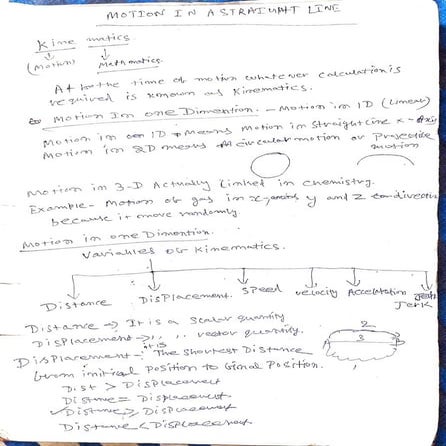 MOTION IN A STRAIGHT LINE
Kine matics
(Motion) Mathematics.
At the time of motion whatever calculation is
required is known as Kinematics.
Motion In one Dimention. - Motion in 1D (Linear)
Motion in 1D means motion in straight line x-axis
Motion in 2D means circular motion or Projectile
motion
Motion in 3-D Actually linked in chemistry.
Example- Motion of gas in x, y and z direction
because it move randomly.
Motion in one Dimention.
Variables of Kinematics.
Distance Displacement Speed velocity Acceleration Jerk
Distance → It is a scalar quantity
Displacement → ,, ,, vector quantity.
Displacement - it is The shortest Distance
from initial position to final Position.
Dist > Displacement
Distance = Displacement
✓ Distance ≥ Displacement
Distance < Displacement
2
3